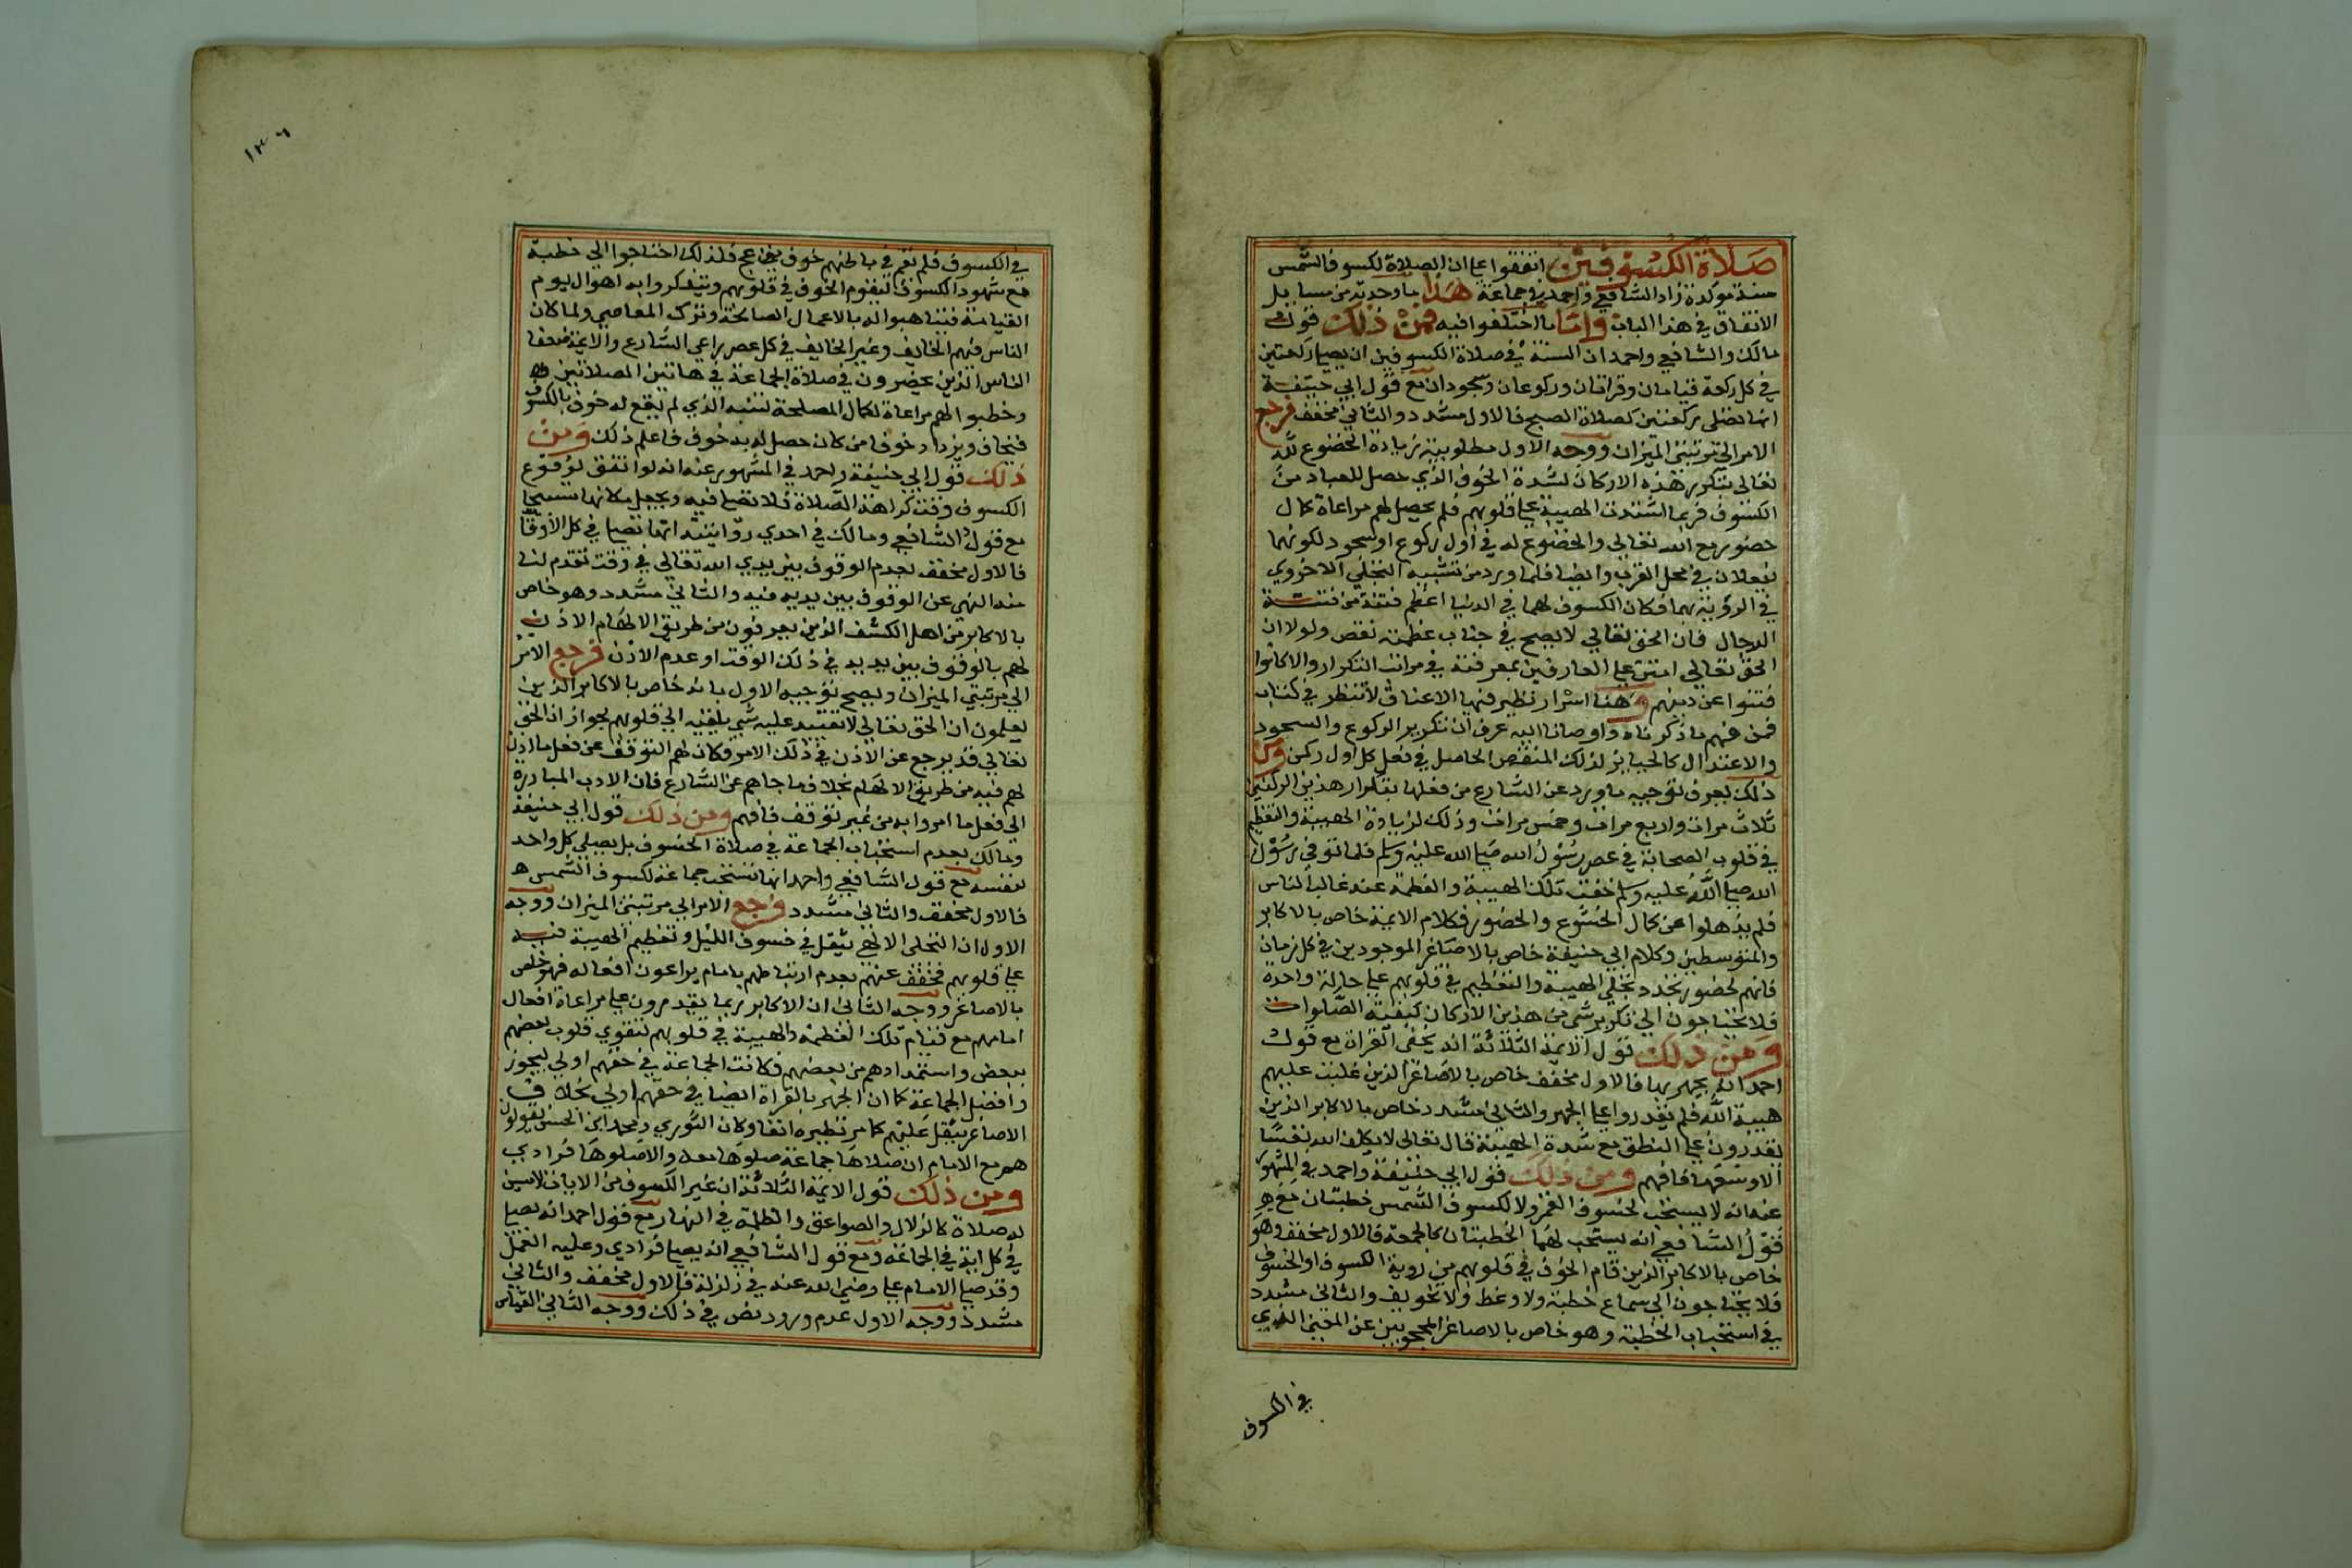 صلاة الكسوفين اتفقوا على ان الصلاة لكسوف الشمس
سنة موكدة زاد الشافعي واحمد في جماعة هذا ما وجدته من مسايل
الاتفاق في هذا الباب واما ما اختلفوا فيه فمن ذلك قول
مالك والشافعي واحمد ان السنة في صلاة الكسوفين ان يصلي ركعتين
في كل ركعة قيامان وقراتان وركوعان وسجودان مع قول ابي حنيفة
انها تصلى ركعتين كصلاة الصبح فالاول مشدد والثاني مخفف فرجع
الامر الى مرتبتي الميزان ووجه الاول مطلوبية زيادة الخضوع لله
تعالى بتكرر هذه الاركان لشدة الخوف الذي حصل للعباد من
الكسوف فربما اشتدت الهيبة على قلوبهم فلم يحصل لهم مراعاة كمال
حضور مع الله تعالى والخضوع له في اول ركوع او سجود لكونهما
يفعلان في محل القرب وايضا فلما ورد من تشبيه التجلي الاخروي
في الروية بهما فكان الكسوف لهما في الدنيا اعظم فتنة من فتنة
الدجال فان الحق تعالى لا يصح في جناب عظمته نقص ولولا ان
الحق تعالى امتن على العارفين بمعرفته في مراتب التنكرار والا كانوا
فتنوا عن دينهم وهنا اسرار تطير فيها الاعناق لا تنظر في كتاب
فمن فهم ما ذكرناه واومانا اليه عرف ان تكرير الركوع والسجود
والاعتدال كالجبا يز لذلك النقص الحاصل في فعل كل اول ركن ومن
ذلك يعرف توجيه ما ورد عن الشارع من فعلها بتكرار هذين الركنين
ثلاث مرات واربع مرات وخمس مرات وذلك لزيادة الهيبة والتعظيم
في قلوب الصحابة في عصر رسول الله صلى الله عليه وسلم فلما توفي رسول
الله صلى الله عليه وسلم خفت تلك الهيبة والعظمة عند غالب الناس
فلم يذهلوا عن كمال الخشوع والحضور فكلام الايمة خاص بالاكابر
والمتوسطين وكلام ابي حنيفة خاص بالاصاغر الموجودين في كل زمان
فانهم لحضور تجدد تجلي الهيبة والتعظيم في قلوبهم على حالة واحدة
فلا يحتاجون الى تكرير شي من هذين الاركان كبقية الصلوات
ومن ذلك قول الايمة الثلاثة انه يخفي القران مع قول
احمد انه يجهر بها فالاول مخفف خاص بالاصاغر الذين غلبت عليهم
هيبة الله فلم يقدروا على الجهر والثاني مشدد خاص بالاكابر الذين
يقدرون على النطق مع شدة الهيبة قال تعالى لا يكلف الله نفسا
الا وسعها فافهم ومن ذلك قول ابي حنيفة واحمد في المشهور
عنه انه لا يستحب لخسوف القمر ولا لكسوف الشمس خطبتان مع
قول الشافعي انه يستحب لهما الخطبتان كالجمعة فالاول مخفف وهو
خاص بالاكابر الذين قام الخوف في قلوبهم من روية الكسوف او الخسوف
فلا يحتاجون الى سماع خطبة ولا وعظ ولا تخويف والثاني مشدد
في استحباب الخطبة وهو خاص بالاصاغر المحجوبين عن المعنى الذي
في الكسوف
١٣٦
في الكسوف فلم يقم في باطنهم خوف مزعج فلذلك احتاجوا الى خطبة
مع شهود الكسوف ليقوم الخوف في قلوبهم ويتفكروا به اهوال يوم
القيامة فيتاهبوا له بالاعمال الصالحة وترك المعاصي ولما كان
الناس فيهم الخايف وغير الخايف في كل عصر راعي الشارع والايمة ضعفا
الناس الذين يحضرون في صلاة الجماعة في هاتين الصلاتين
وخطبوا لهم مراعاة لكمال المصلحة لتنبه الذي لم يقع له خوف بالكسوف
فيخاف ويزداد خوفا من كان حصل له به خوف فاعلم ذلك ومن
ذلك قول ابي حنيفة واحمد في المشهور عنه انه لو اتفق لوقوع
الكسوف وقت كراهة الصلاة فلا تصلى فيه ويجعل مكانها تسبيحا
مع قول الشافعي ومالك في احدي روايتيه انها تصلى في كل الاوقات
فالاول مخفف بعدم الوقوف بين يدي الله تعالى في وقت تقدم لنا
منه النهي عن الوقوف بين يديه فيه والثاني مشدد وهو خاص
بالاكابر من اهل الكشف الذين يعرفون من طريق الالهام الاذن
لهم بالوقوف بين يديه في ذلك الوقت او عدم الاذن فرجع الامر
الى مرتبتي الميزان ويصح توجيه الاول بانه خاص بالاكابر الذين
يعلمون ان الحق تعالى لا تقييد عليه شي يلقيه الى قلوبهم بجواز ان الحق
تعالى قد يرجع عن الاذن في ذلك الامر فكان لهم التوقف عن فعل ما اذن
لهم فيه من طريق الالهام بخلاف ما جاهم عن الشارع فان الادب المبادرة
الى فعل ما امروا به من غير توقف فافهم ومن ذلك قول ابي حنيفة
ومالك بعدم استحباب الجماعة في صلاة الخسوف بل يصلي كل واحد
لنفسه مع قول الشافعي واحمد انها تستحب جماعة لكسوف الشمس
فالاول مخفف والثاني مشدد فرجع الامر الى مرتبتي الميزان ووجه
الاول ان التجلي الالهي يثقل في خسوف الليل وتعظيم الهيبة فيه
على قلوبهم فخفف عنهم بعدم ارتباطهم بامام يراعون افعاله فهو خاص
بالاصاغر ووجه الثاني ان الاكابر ربما يقدرون على مراعاة افعال
امامهم مع قيام تلك العظمة والهيبة في قلوبهم لتقوي قلوب بعضهم
ببعض واستمدادهم من بعضهم فكانت الجماعة في حقهم اولى ليحوز
وافضل الجماعة كما ان الجهر بالقراة ايضا في حقهم اولى بخلاف
الاصاغر يثقل عليهم كما مر نظيره انفا وكان الثوري ومحمد ابن الحسن يقولون
هم مع الامام ان صلاها جماعة صلوها معه والا صلوها فرادي
ومن ذلك قول الايمة الثلاثة ان غير الكسوف من الايات لا يسن
له صلاة كالزلال والصواعق والظلمة في النهار مع قول احمد انه يصلي
في كل اية في الجماعة ومع قول الشافعي انه يصلى فرادي وعليه العمل
وقد صلى الامام على رضي الله عنه في زلزلة فالاول مخفف والثاني
مشدد ووجه الاول عدم ورود نص في ذلك ووجه الثاني القياس